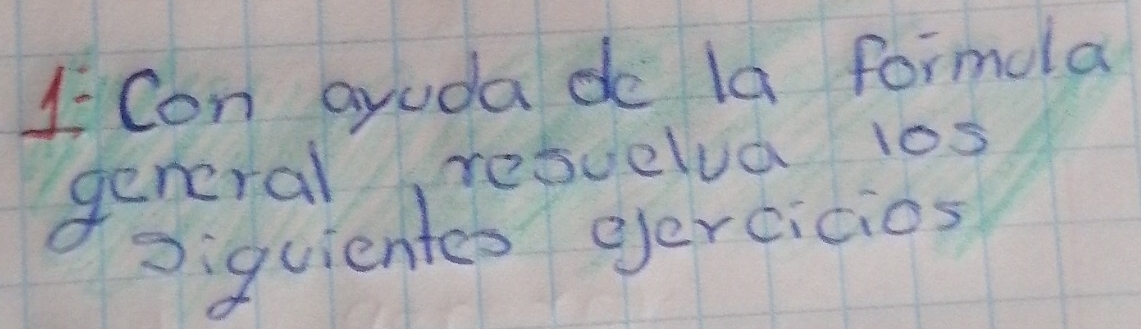 1- Con ayuda de la formula
general, resuelva los
siguientes ejercicios